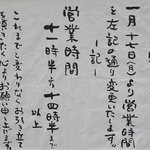 一月十七日(月)より営業時間
を左記の通り変更いたします。
ー記ー
営業時間
十一時半より十四時半まで
以上
これまでと変わらずお引き立て
を頂きたく心よりお願い申し上げます。